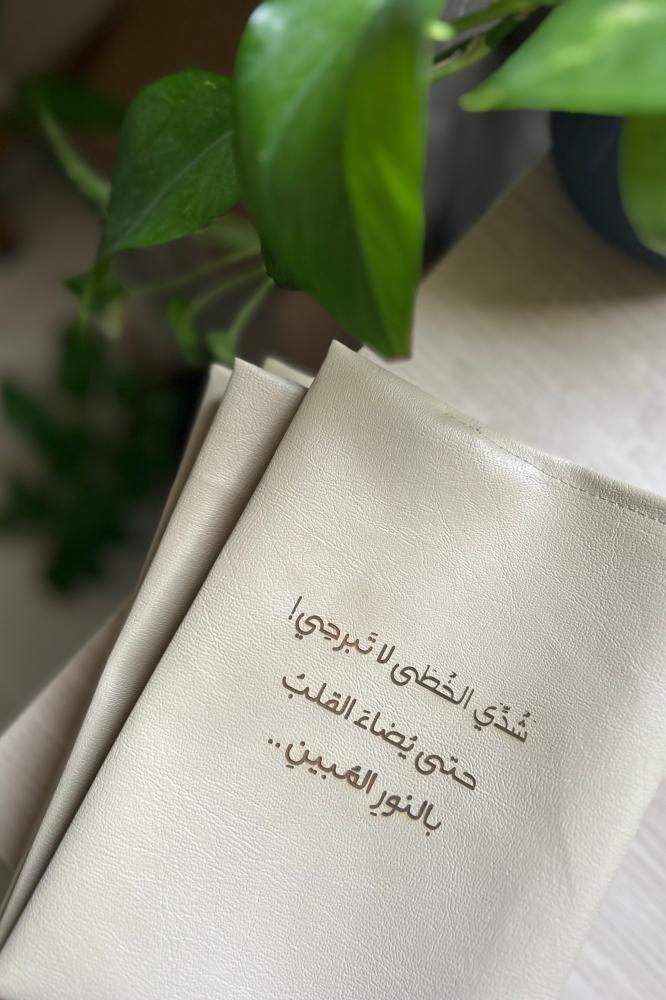 شُدِّي الخُطَى لا تَبرحِي!
حتى يُضاءَ القلبُ
بالنورِ المُبينِ ..